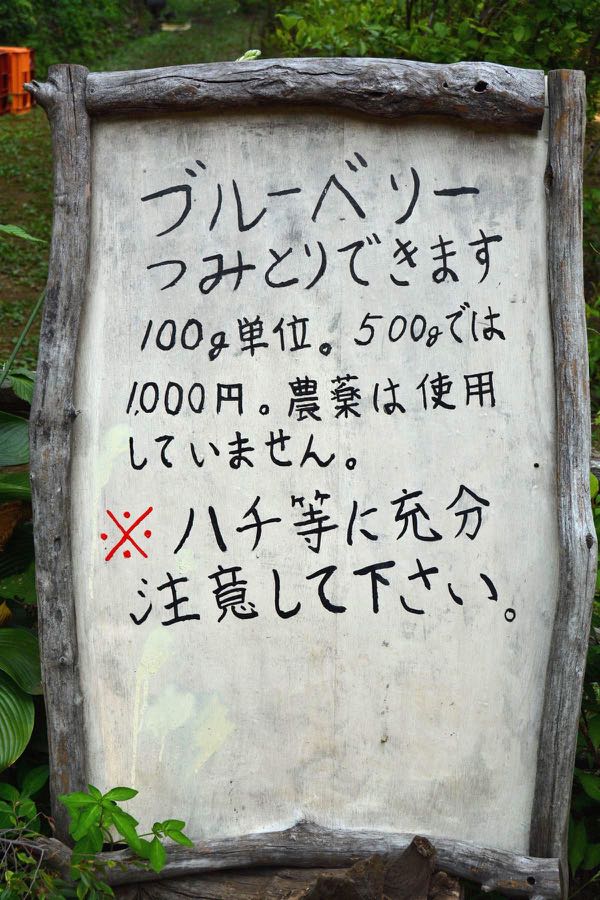 ブルーベリー
つみとりできます
100g単位。500gでは
1,000円。農薬は使用
していません。
※ハチ等に充分
注意して下さい。